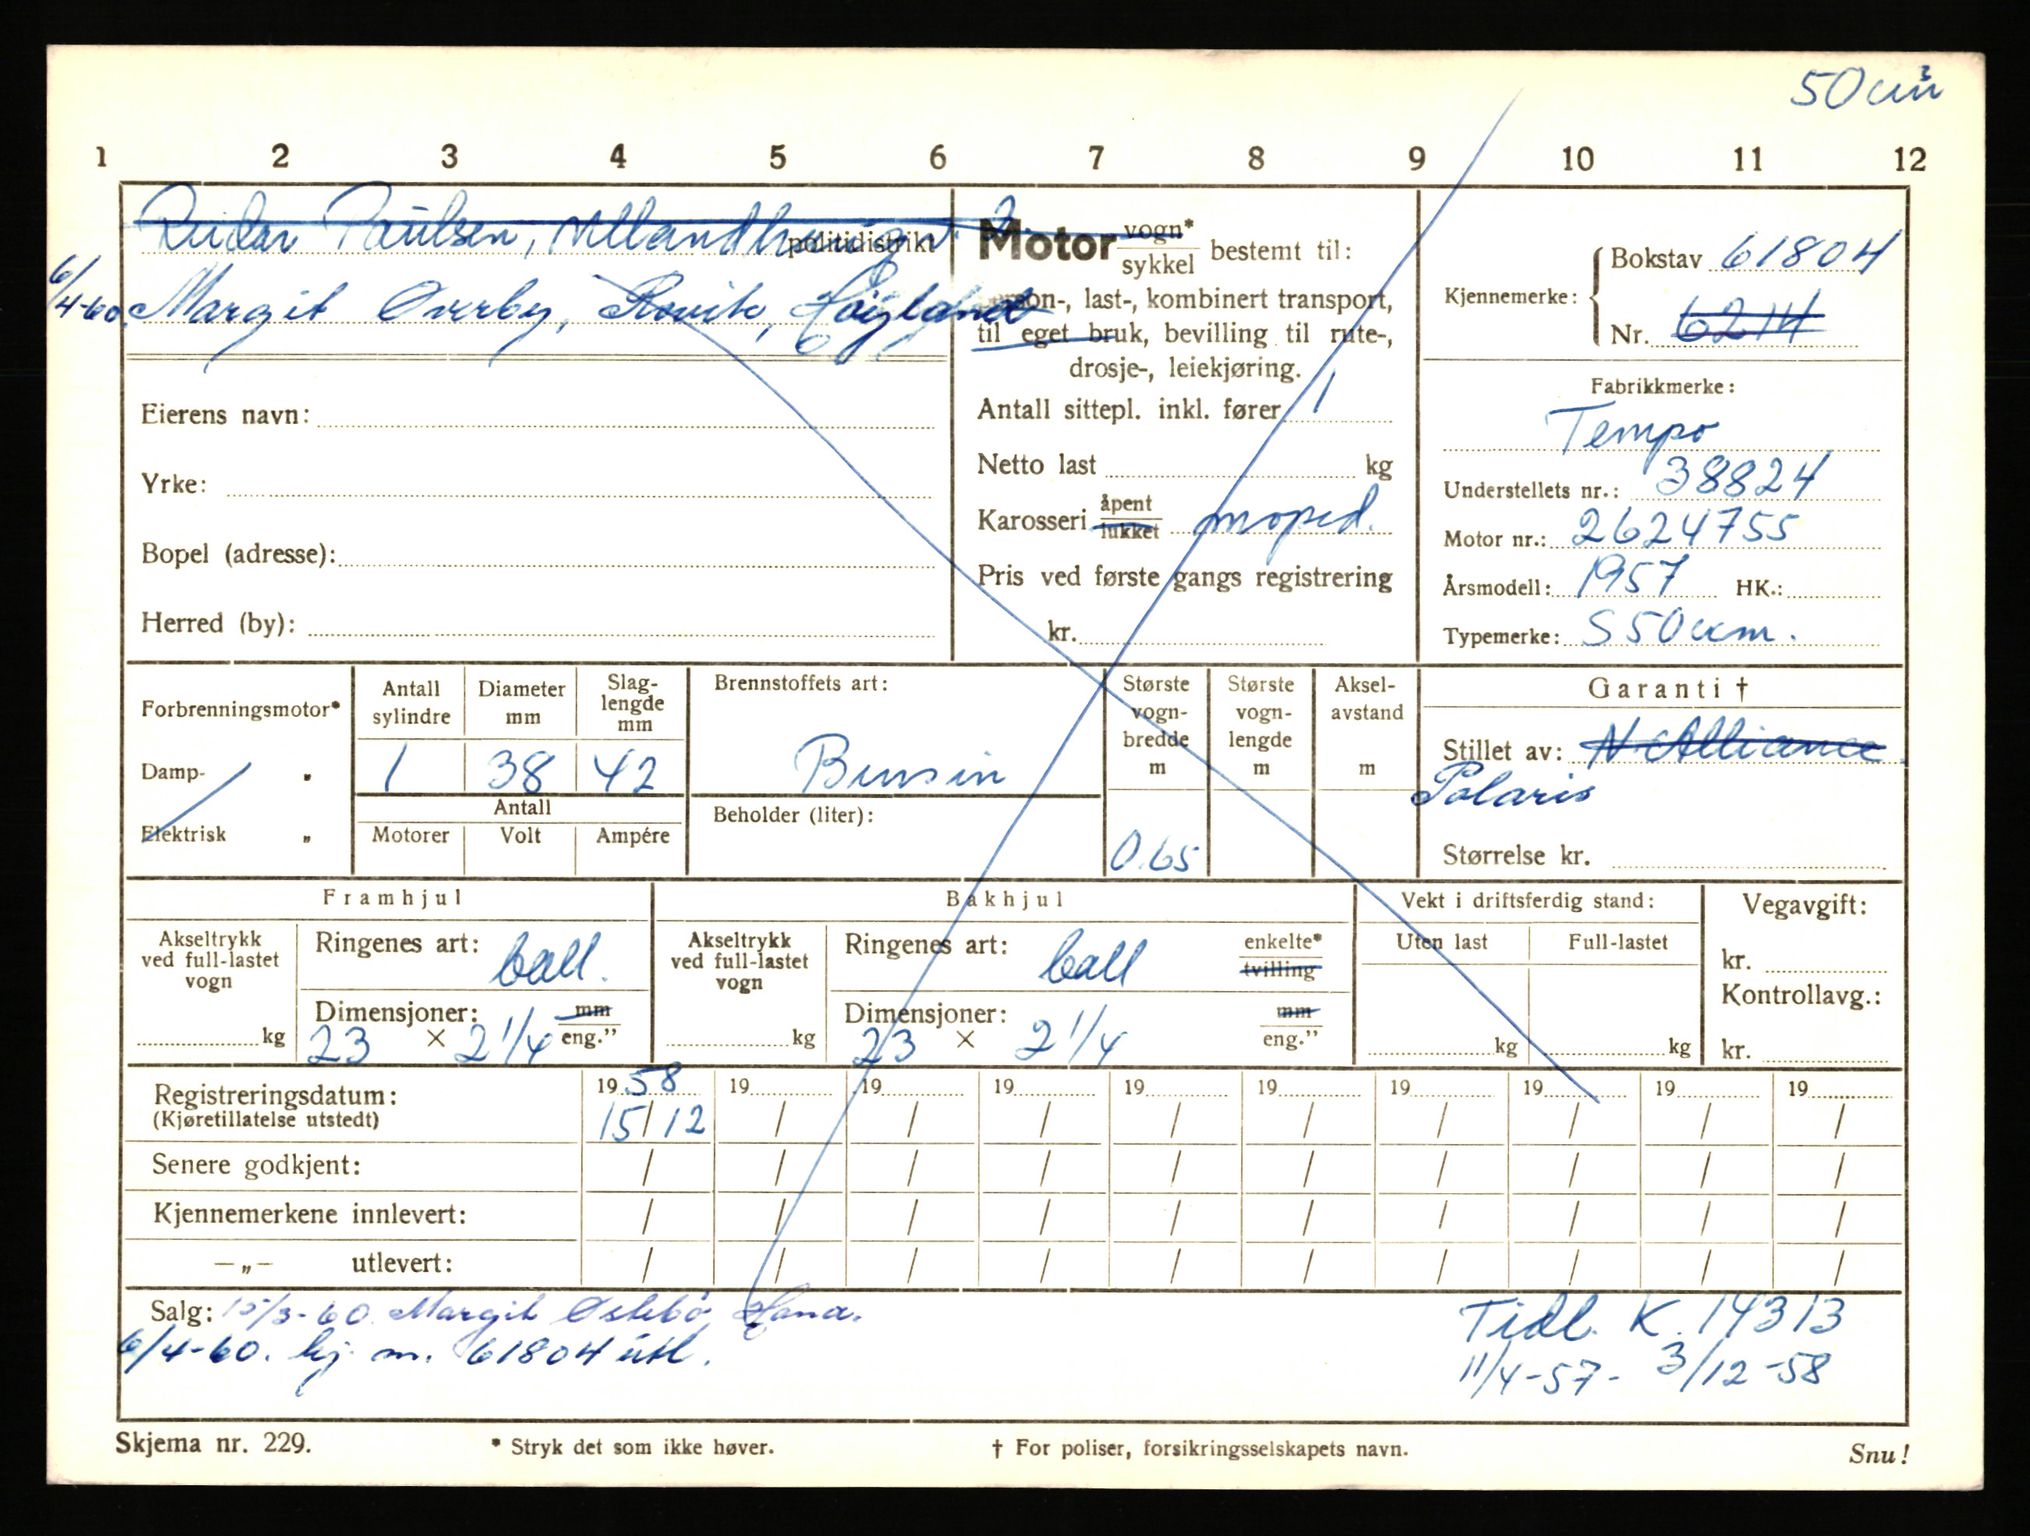 50 cm³
1 2 3 4 5 6 7 8 9 10 11 12
Reidar Paulsen, politidistrikt
6/4-60. Margit Øverby, Høyland
Eierens navn:
Yrke:
Bopel (adresse):
Herred (by):
Motor vogn* sykkel bestemt til:
person-, last-, kombinert transport,
til eget bruk, bevilling til rute-,
drosje-, leiekjøring.
Antall sittepl. inkl. fører 1
Netto last kg
Karosseri åpent lukket moped.
Pris ved første gangs registrering
kr.
Kjennemerke: Bokstav 61804
Nr. 6214
Fabrikkmerke:
Tempo
Understellets nr.: 38824
Motor nr.: 2624755
Årsmodell: 1957 HK.:
Typemerke: S 50 ccm.
Forbrenningsmotor*
Damp- „
Elektrisk „
Antall sylindre Diameter mm Slag- lengde mm
1 38 42
Antall
Motorer Volt Ampére
Brennstoffets art:
Bensin
Beholder (liter):
Største vogn- bredde m
0.65
Største vogn- lengde m
Aksel- avstand m
Garanti †
Stillet av: N Alliance
Polaris
Størrelse kr.
Framhjul
Akseltrykk ved full-lastet vogn
kg
Ringenes art: ball.
Dimensjoner: mm
23 × 2 1/4 eng.”
Bakhjul
Akseltrykk ved full-lastet vogn
kg
Ringenes art: ball enkelte* tvilling
Dimensjoner: mm
23 × 2 1/4 eng.”
Vekt i driftsferdig stand:
Uten last Full-lastet
kg kg
Vegavgift:
kr.
Kontrollavg.:
kr.
Registreringsdatum: 19 58 19 19 19 19 19 19 19 19 19
(Kjøretillatelse utstedt) 15/12 / / / / / / / / /
Senere godkjent: / / / / / / / / / /
Kjennemerkene innlevert: / / / / / / / / / /
—„— utlevert: / / / / / / / / / /
Salg: 15/3-60. Margit Østebø, Hana.
6/4-60. kj. m. 61804 utl.
Tidl. K. 14313
11/4-57- 3/12-58
Skjema nr. 229. * Stryk det som ikke høver. † For poliser, forsikringsselskapets navn. Snu!